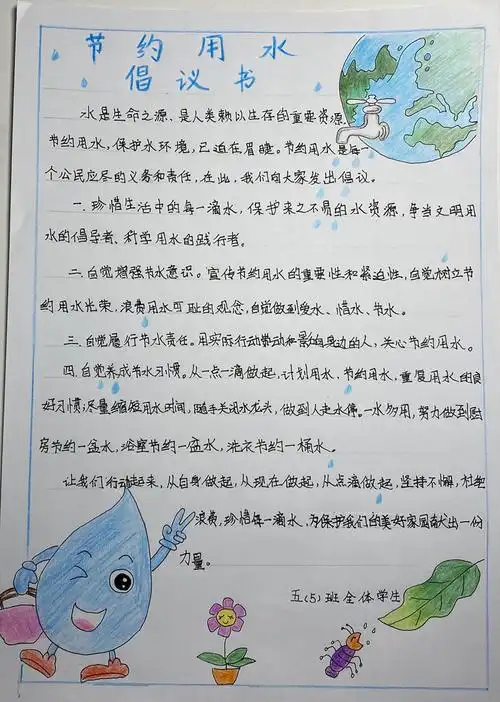 节约用水
倡议书
水是生命之源、是人类赖以生存的重要资源.
节约用水，保护水环境，已迫在眉睫。节约用水是每一
个公民应尽的义务和责任，在此，我们向大家发出倡议。
一.珍惜生活中的每一滴水，保护来之不易的水资源，争当文明用
水的倡导者、科学用水的践行者。
二.自觉增强节水意识。宣传节约用水的重要性和紧迫性，自觉树立节
约用水光荣，浪费用水可耻的观念，自觉做到爱水、惜水、节水。
三.自觉履行节水责任。用实际行动带动和影响身边的人，关心节约用水。
四.自觉养成节水习惯。从一点一滴做起，计划用水、节约用水，重展用水的良
好习惯；尽量缩短用水时间，随手关闭水龙头，做到人走水停。一水多用，努力做到厨
房节约一盆水，浴室节约一盆水，洗衣节约一桶水。
让我们行动起来，从自身做起，从现在做起，从点滴做起，坚持不懈，杜绝
浪费，珍惜每一滴水，为保护我们的美好家园献出一份
力量。
五(5)班全体学生